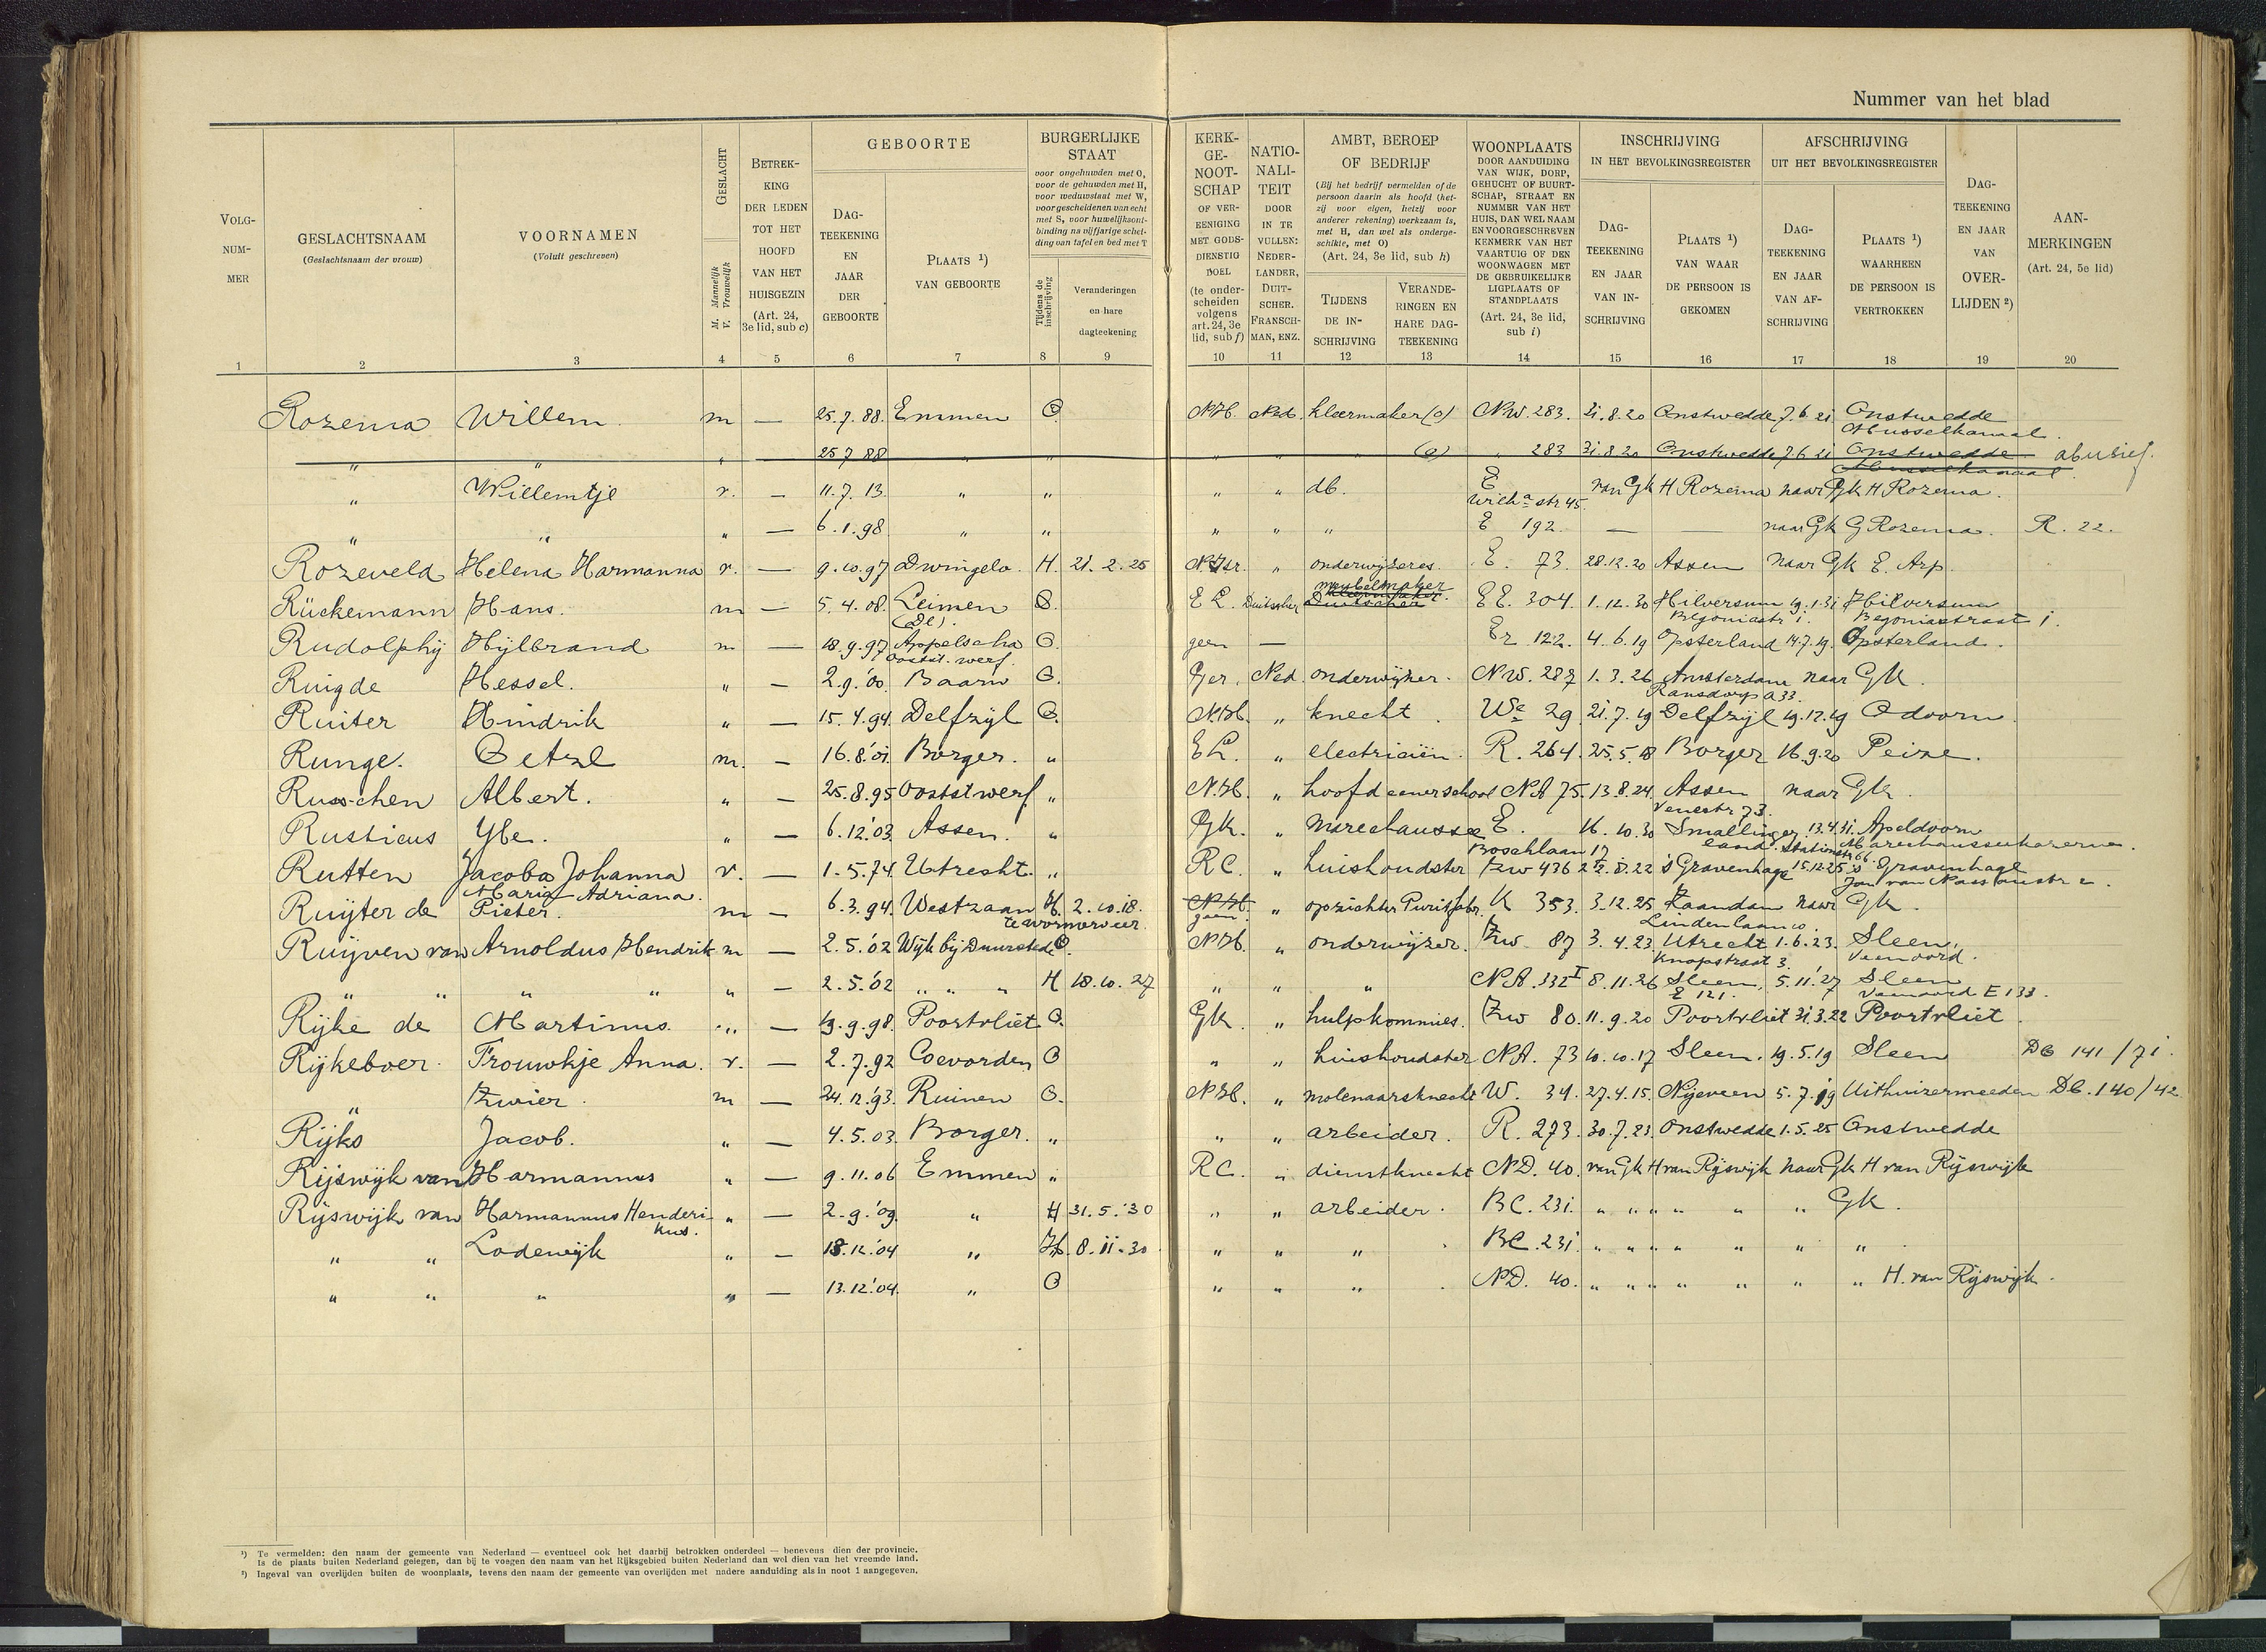 Nummer van het blad
VOLG-NUM-MER
GESLACHTSNAAM
(Geslachtsnaam der vrouw)
VOORNAMEN
(Voluit geschreven)
GESLACHT
M. Mannelijk
V. Vrouwelijk
BETREK-KING DER LEDEN TOT HET HOOFD VAN HET HUISGEZIN
(Art. 24, 3e lid, sub c)
GEBOORTE
DAG-TEEKENING EN JAAR DER GEBOORTE
PLAATS ¹) VAN GEBOORTE
BURGERLIJKE STAAT
voor ongehuwden met O, voor de gehuwden met H, voor weduwstaat met W, voor gescheidenen van echt met S, voor huwelijksont-binding na vijfjarige schei-ding van tafel en bed met T
Tijdens de inschrijving
Veranderingen en hare dagteekening
KERK-GE-NOOT-SCHAP OF VER-EENIGING MET GODS-DIENSTIG DOEL
(te onder-scheiden volgens art. 24, 3e lid, sub f)
NATIO-NALI-TEIT DOOR IN TE VULLEN: NEDER-LANDER, DUIT-SCHER. FRANSCH-MAN, ENZ.
AMBT, BEROEP OF BEDRIJF
(Bij het bedrijf vermelden of de persoon daarin als hoofd (het-zij voor eigen, hetzij voor anderer rekening) werkzaam is, met H, dan wel als onderge-schikte, met O)
(Art. 24, 3e lid, sub h)
TIJDENS DE IN-SCHRIJVING
VERANDE-RINGEN EN HARE DAG-TEEKENING
WOONPLAATS
DOOR AANDUIDING VAN WIJK, DORP, GEHUCHT OF BUURT-SCHAP, STRAAT EN NUMMER VAN HET HUIS, DAN WEL NAAM EN VOORGESCHREVEN KENMERK VAN HET VAARTUIG OF DEN WOONWAGEN MET DE GEBRUIKELIJKE LIGPLAATS OF STANDPLAATS
(Art. 24, 3e lid, sub i)
INSCHRIJVING
IN HET BEVOLKINGSREGISTER
DAG-TEEKENING EN JAAR VAN IN-SCHRIJVING
PLAATS ¹) VAN WAAR DE PERSOON IS GEKOMEN
AFSCHRIJVING
UIT HET BEVOLKINGSREGISTER
DAG-TEEKENING EN JAAR VAN AF-SCHRIJVING
PLAATS ¹) WAARHEEN DE PERSOON IS VERTROKKEN
DAG-TEEKENING EN JAAR VAN OVER-LIJDEN ²)
AAN-MERKINGEN
(Art. 24, 5e lid)
1 2 3 4 5 6 7 8 9 10 11 12 13 14 15 16 17 18 19 20
Rozema Willem. m — 25.7.88. Emmen O. N.H. Ned. kleermaker (o) N.W. 283. 31.8.20 Onstwedde 7.6.21 Onstwedde
Musselkanaal.
" " " — 25 7 88 " " " " (o) " 283 31.8.20 Onstwedde 7.6 21 Onstwedde abusief.
Musselkanaal
" Willemtje v. — 11.7.13. " " " " db. E van Gk H Rozema naar Gk H Rozema.
Wilha str 45.
" " " — 6.1.98 " " " " " E 192. — — naar Gk G Rozema. R. 22.
Rozeveld Helena Harmanna v. — 9.10.97 Dwingelo. H. 21.2.25 " onderwijzeres. E. 73. 28.12.20 Assen naar Gk E. Arp.
Rückemann Hans. m — 5.4.08. Leimen E L. Duitscher meubelmaker EE. 304. 1.12.30 Hilversum 19.1.31 Hilversum
(Dl). Begoniastr 1. Begoniastraat 1.
Rudolphij Hijlbrand m — 18.9.97 Appelscha O. geen — Er 122. 4.6.19 Opsterland 14.7.19. Opsterland.
Ooststwerf.
Ruigde Hessel. " — 2.9.'00. Baarn O. Ger. Ned. onderwijzer. N.W. 287 1.3.26 Amsterdam naar GK.
Ransdorp a 33.
Ruiter Hindrik " — 15.4.94. Delfzijl O. N.H. " knecht. We 29 21.7.19 Delfzijl 19.12.19 Odoorn
Runge. Oetze m. — 16.8.'01. Borger. " E L. " electriciën. R. 264. 25.5.18 Borger 16.9.20 Peize.
Russchen Albert. " — 25.8.95 Ooststwerf " N.H. " hoofd eener school N A 75. 13.8.24. Assen naar Gk.
Venestr 73.
Rusticus Ybe. " — 6.12.'03. Assen. " Gk. " marechaussee E. 16.10.30 Smallinger 13.4.31. Apeldoorn
Boschlaan 17 land. Stationstr 66. Marechausseekazerne.
Rutten Jacoba Johanna v. — 1.5.74. Utrecht. " RC. " huishoudster Zw 436 .8.22 's Gravenhage 15.12.25 's Gravenhage
Maria Adriana. Jan van Nassaustr 2.
Ruijter de Pieter. m — 6.3.94. Westzaan H. 2.10.18. N.H. " opzichter Puritfabr. K 353. 3.12.25 Zaandam naar Gk.
te Wormerveer. geen. Lindenlaan 10.
Ruijven van Arnoldus Hendrik m — 2.5.'02 Wijk bij Duurstede O. N.H. " onderwijzer. Zw 87 3.4.23. Utrecht 1.6.23. Sleen,
Knopstraat 3. Veenoord.
" " " " " — 2.5.'02 " " " H 18.10.27 " " " N.A. 132 I 8.11.26 Sleen, 5.11.'27 Sleen
E 121. Veenoord E 133.
Rijke de Martinus. " — 13.9.98. Poortvliet O. Gk. " hulpkommies. Zw 80. 11.9.20 Poortvliet 31.3.22 Poortvliet.
Rijkeboer. Trouwkje Anna. v. — 2.7.92 Coevorden O " " huishoudster NA. 73 10.10.17 Sleen. 19.5.19 Sleen DB 141/71.
" Zwier. m — 24.12.'93. Ruinen O. N.H. " molenaarsknecht W. 34. 27.4.15. Nijeveen 5.7.19 Uithuizermeeden DB. 140/42
Rijks Jacob. " — 4.5.03. Borger. " " " arbeider. R. 273. 30.7.23. Onstwedde 1.5.25 Onstwedde
Rijswijk van Harmannus " — 9.11.06 Emmen " RC. " dienstknecht N.D. 40. van Gk H van Rijswijk naar Gk H van Rijswijk
Rijswijk van Harmannus Henderi- " — 2.9.'09. " H 31.5.'30 " " arbeider. BC. 231. " " " " " GK.
kus.
" " Lodewijk " — 18.12.'04 " H. 8.11.30 " " " BC. 231. " " " " " "
" " " " — 13.12.'04. " O " " " N.D. 40. " " " " " " H. van Rijswijk.
¹) Te vermelden: den naam der gemeente van Nederland — eventueel ook het daarbij betrokken onderdeel — benevens dien der provincie.
Is de plaats buiten Nederland gelegen, dan bij te voegen den naam van het Rijksgebied buiten Nederland dan wel dien van het vreemde land.
²) Ingeval van overlijden buiten de woonplaats, tevens den naam der gemeente van overlijden met nadere aanduiding als in noot 1 aangegeven.